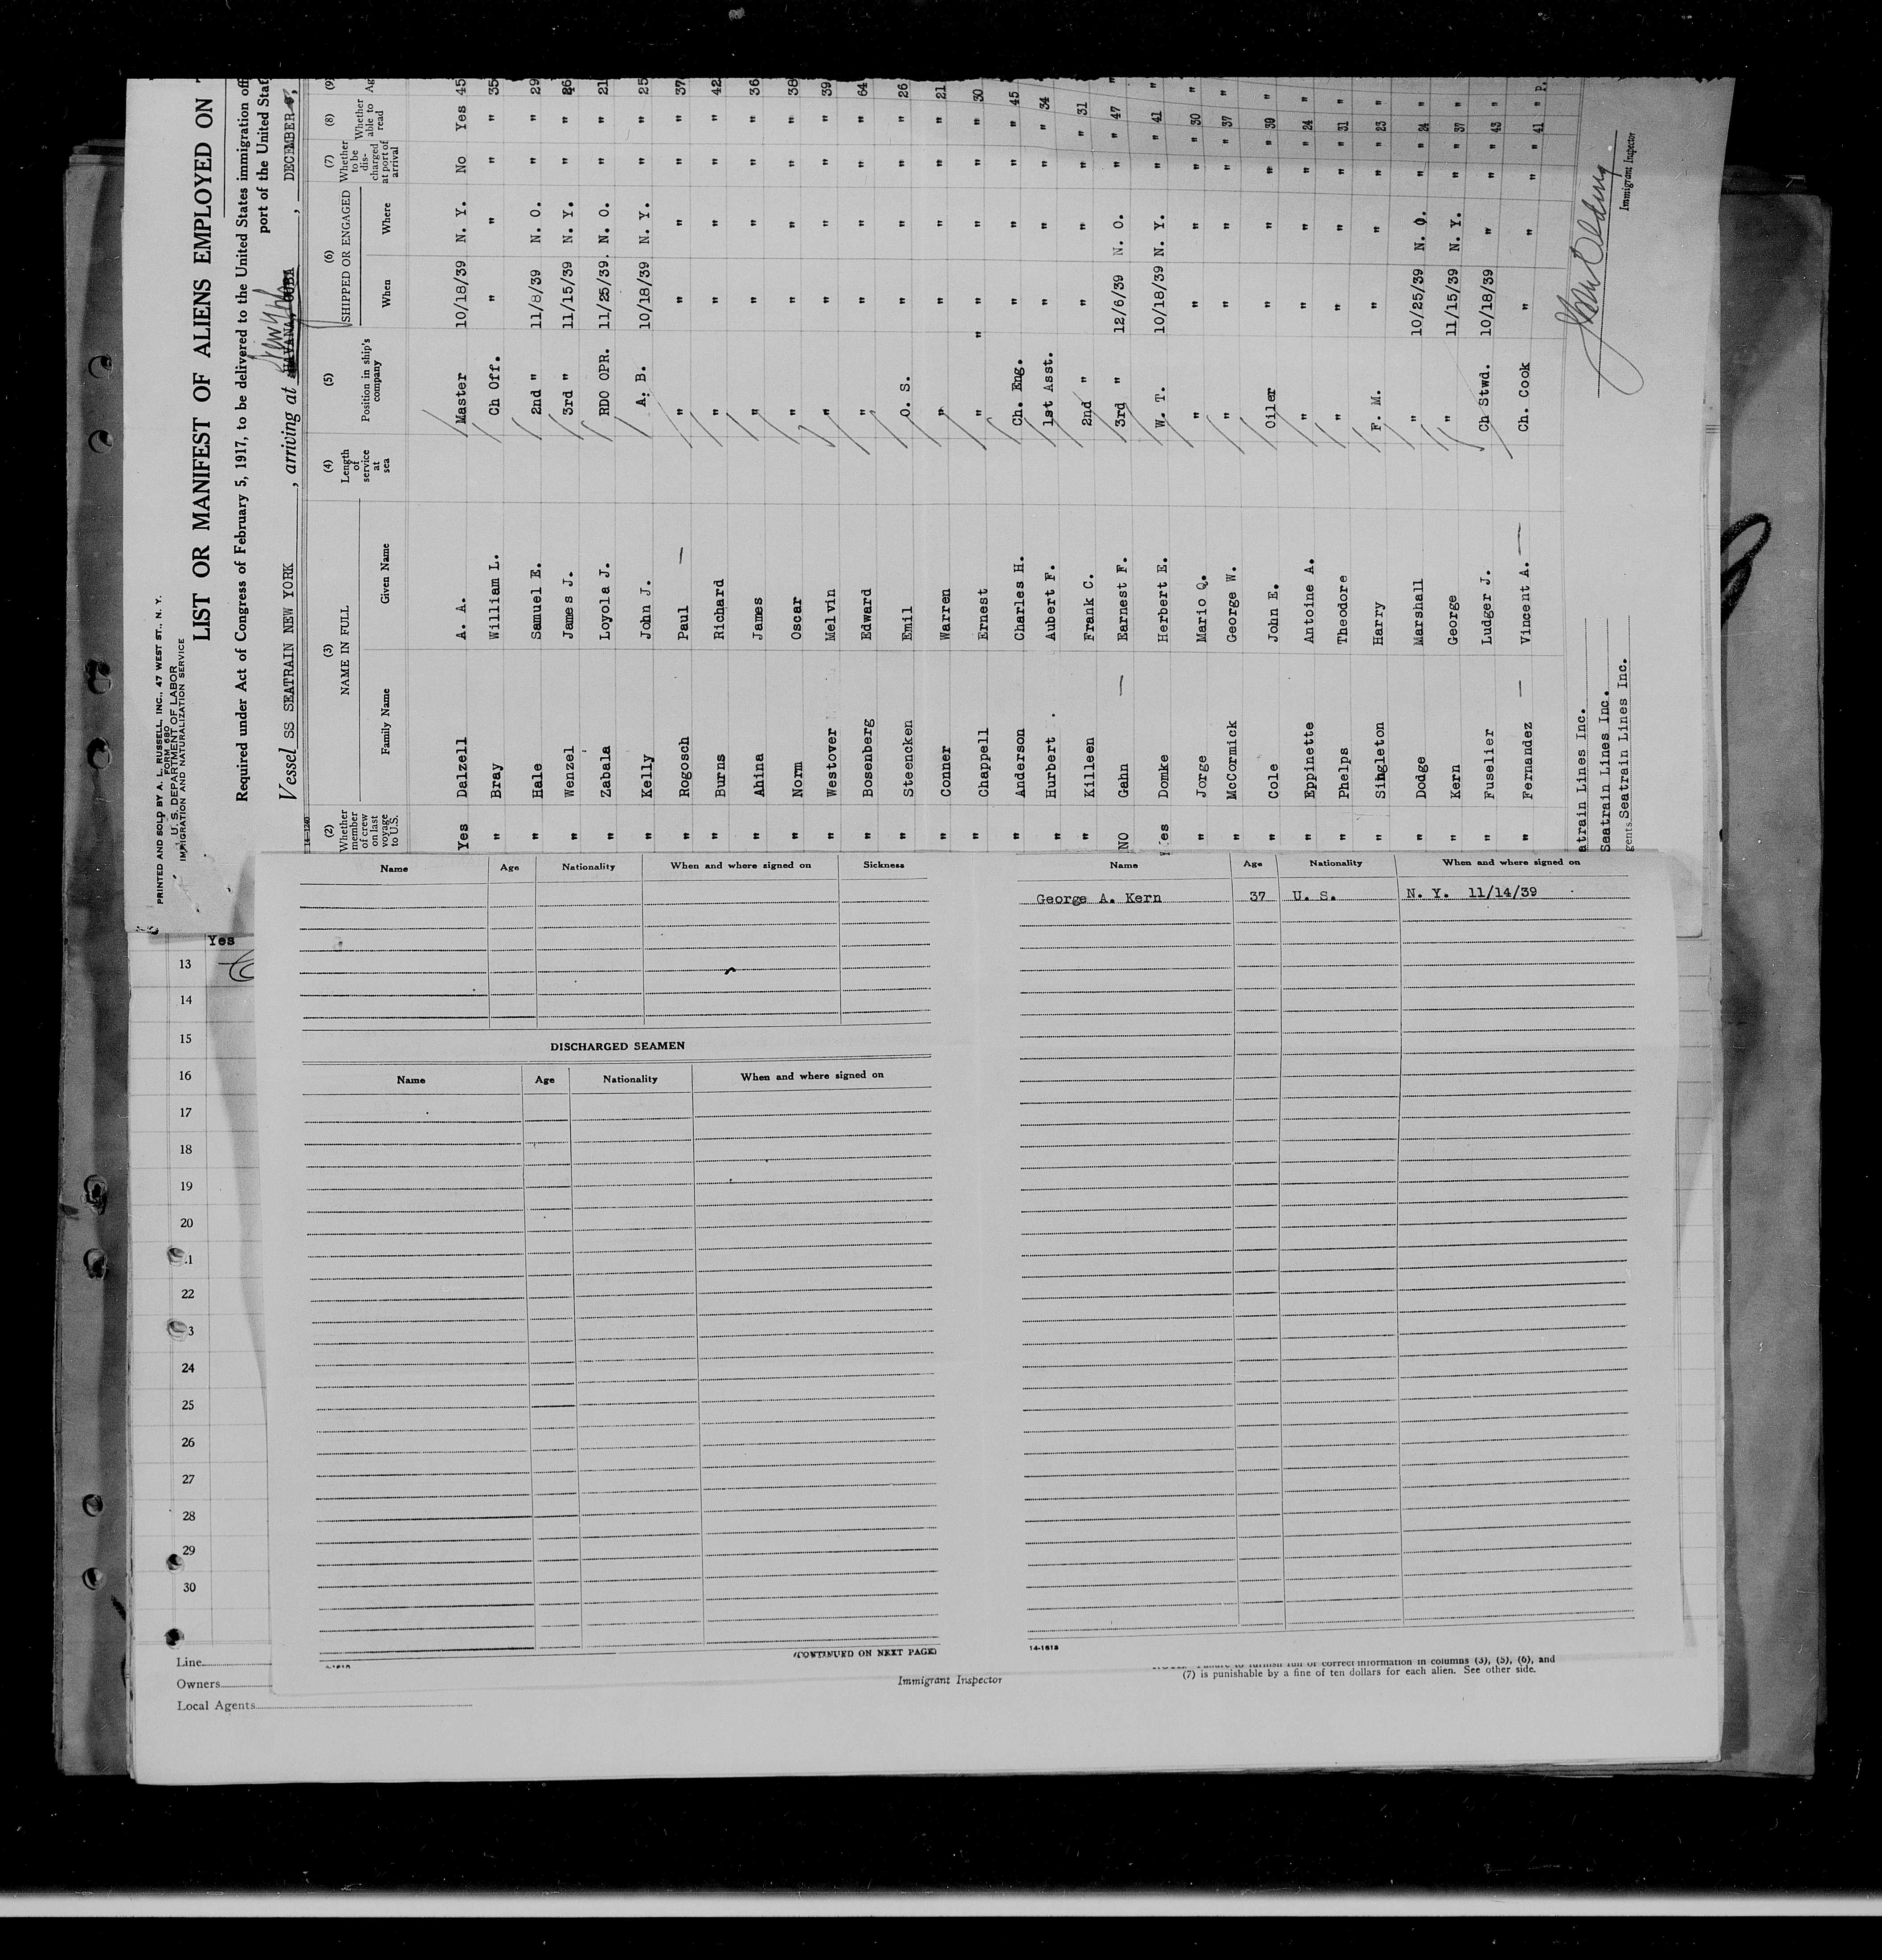 PRINTED AND SOLD BY A. L. RUSSELL, INC., 47 WEST ST., N. Y.
FORM 680
U. S. DEPARTMENT OF LABOR
IMMIGRATION AND NATURALIZATION SERVICE
LIST OR MANIFEST OF ALIENS EMPLOYED ON
Required under Act of Congress of February 5, 1917, to be delivered to the United States immigration off
port of the United Stat
Vessel SS SEATRAIN NEW YORK, arriving at HAVANA, CUBA, DECEMBER
(2) Whether member of crew on last voyage to U.S. (3) NAME IN FULL Family Name Given Name (4) Length of service at sea (5) Position in ship's company (6) SHIPPED OR ENGAGED When Where (7) Whether to be discharged at port of arrival (8) Whether able to read (9) Ag
Yes Dalzell A. A. Master 10/18/39 N. Y. No Yes 45
" Bray William L. Ch Off. " " " " 35
" Hale Samuel E. 2nd " 11/8/39 N. O. " " 29
" Wenzel James J. 3rd " 11/15/39 N. Y. " " 26
" Zabala Loyola J. RDO OPR. 11/25/39. N. O. " " 21
" Kelly John J. A. B. 10/18/39 N. Y. " " 25
" Rogosch Paul — " " " " " 37
" Burns Richard " " " " " 42
" Ahina James " " " " " 36
" Norm Oscar " " " " " 38
" Westover Melvin " " " " " 39
" Bosenberg Edward " " " " " 64
" Steencken Emil O. S. " " " " 26
" Conner Warren " " " " " 21
" Chappell Ernest " " " " " 30
" Anderson Charles H. Ch. Eng. " " " " 45
" Hurbert . Aubert F. 1st Asst. " " " " 34
" Killeen Frank C. 2nd " " " " " 31
NO Gahn — Earnest F. 3rd " 12/6/39 N. O. " " 47 "
Yes Domke Herbert E. W. T. 10/18/39 N. Y. " " 41 "
" Jorge Mario Q. " " " " " 30 "
" McCormick George W. " " " " " 37 "
" Cole John E. Oiler " " " " 39 "
" Eppinette Antoine A. " " " " " 24 "
" Phelps Theodore " " " " " 31 "
" Singleton Harry F. M. " " " " 23 "
" Dodge Marshall " 10/25/39 N. O. " " 24 "
" Kern George " 11/15/39 N. Y. " " 37 "
" Fuselier Ludger J. Ch Stwd. 10/18/39 " " " 43 "
" Fernandez — Vincent A. — Ch. Cook " " " " 41 " P.
atrain Lines Inc.
Seatrain Lines Inc.
gents Seatrain Lines Inc.
Immigrant Inspector
Name Age Nationality When and where signed on Sickness
DISCHARGED SEAMEN
Name Age Nationality When and where signed on
(CONTINUED ON NEXT PAGE)
Name Age Nationality When and where signed on
George A. Kern 37 U. S. N. Y. 11/14/39
14-1618
Yes
13
14
15
16
17
18
19
20
.1
22
3
24
25
26
27
28
29
30
Line
Owners
Local Agents
Immigrant Inspector
correct information in columns (3), (5), (6), and
(7) is punishable by a fine of ten dollars for each alien. See other side.